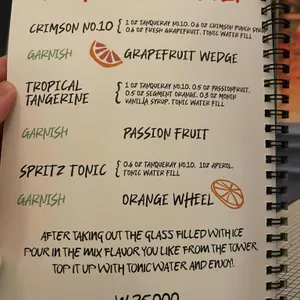 CRIMSON NO.10 { 1 OZ TANQUERAY NO.10. 0.6 OZ CRIMSON PUNCH SYRUP
0.6 OZ FRESH GRAPEFRUIT. TONIC WATER FILL
GARNISH GRAPEFRUIT WEDGE
TROPICAL TANGERINE { 1 OZ TANQUERAY NO.10. 0.5 OZ PASSIONFRUIT.
0.5 OZ SEGMENT ORANGE. 0.3 OZ MONIN
VANILLA SYRUP. TONIC WATER FILL
GARNISH PASSION FRUIT
SPRITZ TONIC { 0.6 OZ TANQUERAY NO.10. 1OZ APEROL.
TONIC WATER FILL
GARNISH ORANGE WHEEL
AFTER TAKING OUT THE GLASS FILLED WITH ICE
POUR IN THE MIX FLAVOR YOU LIKE FROM THE TOWER
TOP IT UP WITH TONIC WATER AND ENJOY!